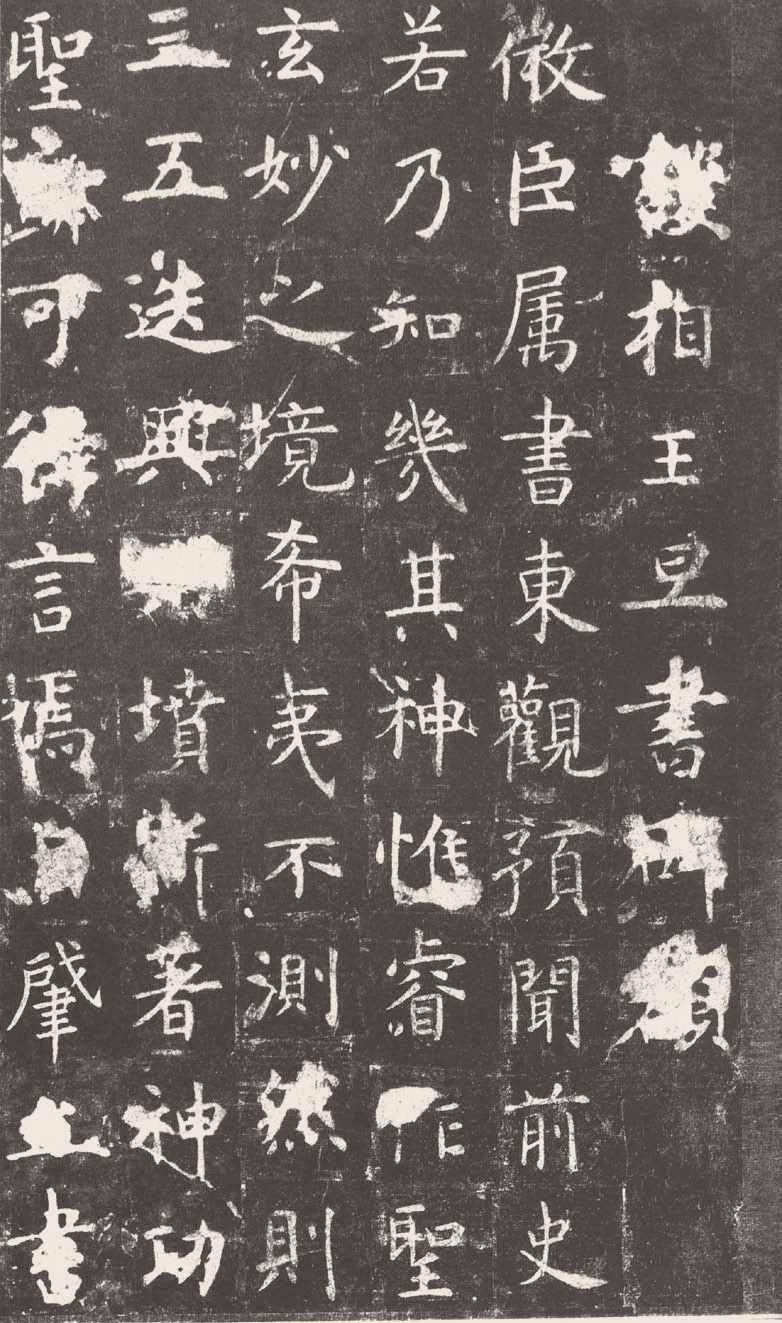 相王旦書碑額
微臣属書東觀預聞前史
若乃知幾其神惟睿作聖
玄妙之境希夷不測然則
三五迭興墳斯著神功
聖可得言焉自肇立書